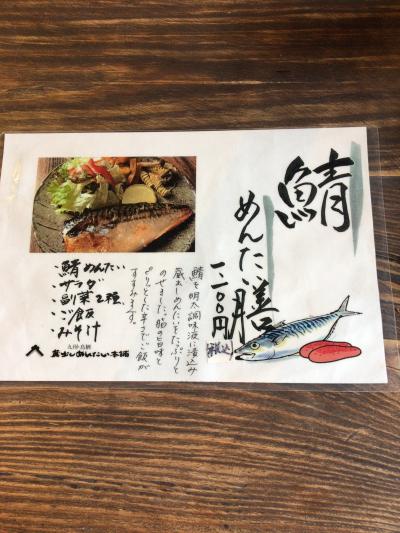 鯖
めんたい膳
一二〇〇円
税込
鯖を明太調味液に漬込み
蔵出しめんたいをたっぷりと
のせました。脂の旨味と
ピリッとした辛さでご飯が
すすみます。
・鯖めんたい
・サラダ
・副菜2種、
・ご飯
・みそ汁
九州・鳥栖
蔵出しめんたい本舗